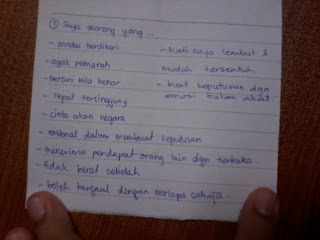 ① Saya seorang yang ...
- pandai berdikari
- agak pemarah
- berani bila benar
- cepat tersinggung
- cinta akan negara
- rasional dalam membuat keputusan
- menerima pendapat orang lain dgn terbuka
- tidak berat sebelah
- boleh bergaul dengan sesiapa sahaja
- hati saya lembut &
mudah tersentuh
- buat keputusan dgn
emosi bukan akal